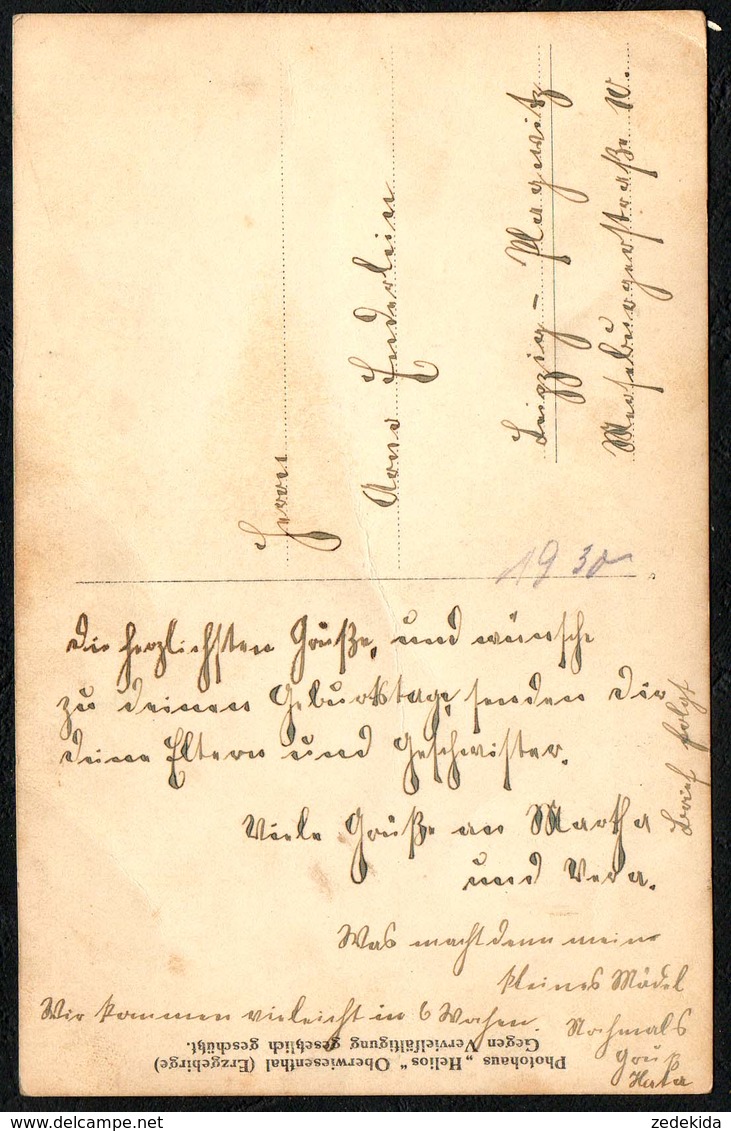 Herrn
Arno Enderlein
Leipzig-Plagwitz
Merseburgerstraße 10.
1930
Die herzlichsten Grüße, und wünsche
zu deinen Geburtstage, senden Dir
deine Eltern und Geschwister.
Viele Grüße an Martha
und Vera.
Brief folgt
Was macht denn mein
kleines Mädel
Wir kommen vieleicht in 6 Wochen.
Nochmals
Gruß
Photohaus „Helios" Oberwiesenthal (Erzgebirge)
Gegen Vervielfältigung gesetzlich geschützt.
zedekida